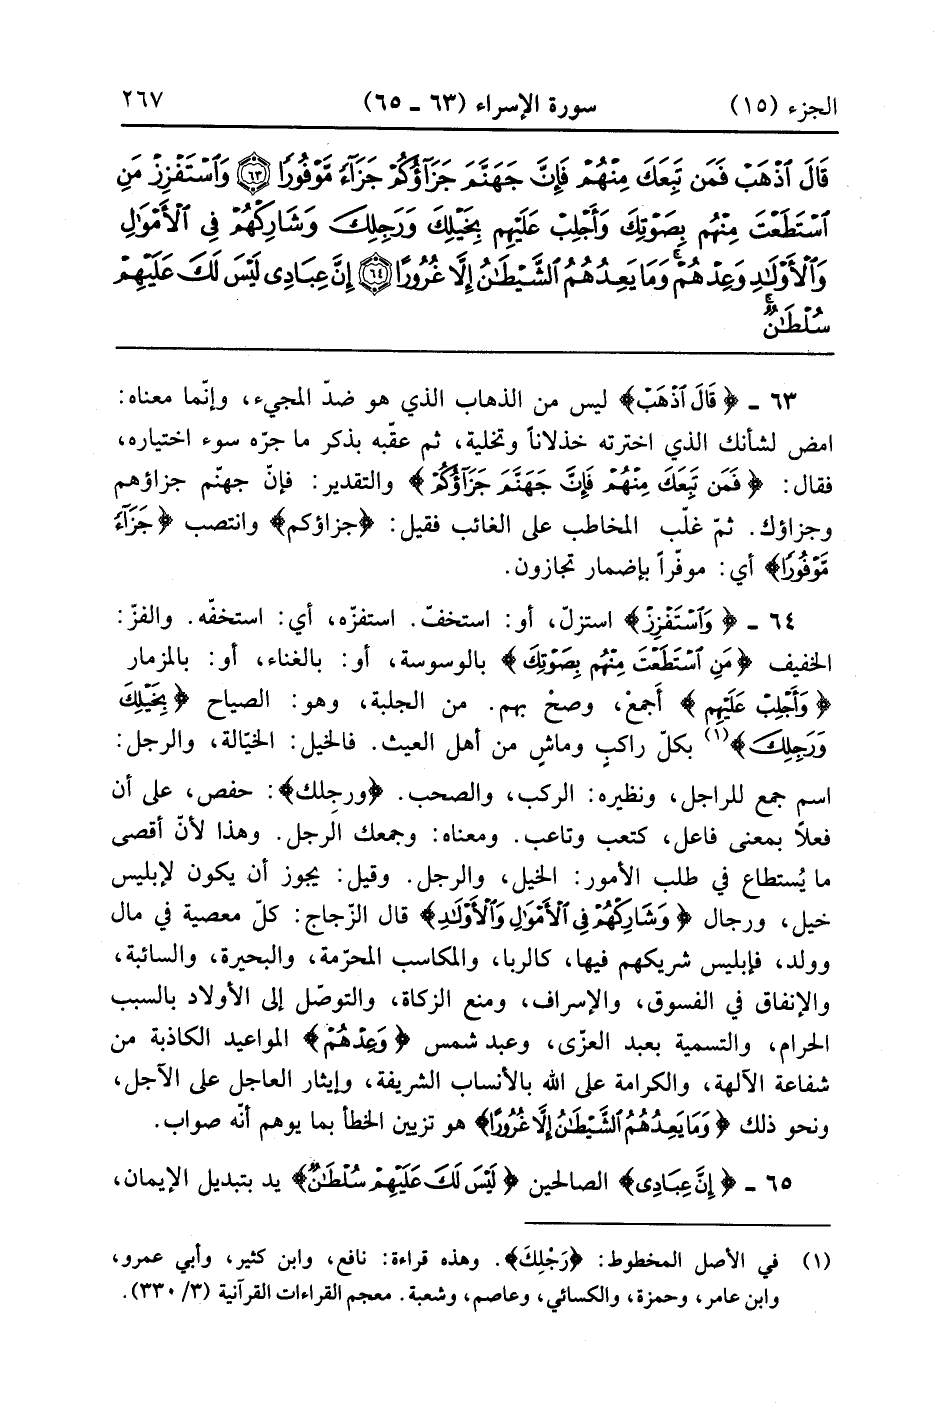 الجزء (١٥) سورة الإسراء (٦٣ - ٦٥) ٢٦٧
قَالَ ٱذْهَبْ فَمَن تَبِعَكَ مِنْهُمْ فَإِنَّ جَهَنَّمَ جَزَآؤُكُمْ جَزَآءً مَّوْفُورًا ﴿٦٣﴾ وَٱسْتَفْزِزْ مَنِ
ٱسْتَطَعْتَ مِنْهُم بِصَوْتِكَ وَأَجْلِبْ عَلَيْهِم بِخَيْلِكَ وَرَجِلِكَ وَشَارِكْهُمْ فِى ٱلْأَمْوَٰلِ
وَٱلْأَوْلَٰدِ وَعِدْهُمْ ۚ وَمَا يَعِدُهُمُ ٱلشَّيْطَٰنُ إِلَّا غُرُورًا ﴿٦٤﴾ إِنَّ عِبَادِى لَيْسَ لَكَ عَلَيْهِمْ
سُلْطَٰنٌ ۚ
٦٣ - ﴿قَالَ ٱذْهَبْ﴾ ليس من الذهاب الذي هو ضدّ المجيء، وإنّما معناه:
امض لشأنك الذي اخترته خذلاناً وتخلية، ثم عقّبه بذكر ما جرّه سوء اختياره،
فقال: ﴿فَمَن تَبِعَكَ مِنْهُمْ فَإِنَّ جَهَنَّمَ جَزَآؤُكُمْ﴾ والتقدير: فإنّ جهنّم جزاؤهم
وجزاؤك. ثمّ غلّب المخاطب على الغائب فقيل: ﴿جزاؤكم﴾ وانتصب ﴿جَزَآءً
مَّوْفُورًا﴾ أي: موفّراً بإضمار تجازون.
٦٤ - ﴿وَٱسْتَفْزِزْ﴾ استزلّ، أو: استخفّ. استفزّه، أي: استخفّه. والفزّ:
الخفيف ﴿مَنِ ٱسْتَطَعْتَ مِنْهُم بِصَوْتِكَ﴾ بالوسوسة، أو: بالغناء، أو: بالمزمار
﴿وَأَجْلِبْ عَلَيْهِم﴾ أَجمعْ، وصحْ بهم. من الجلبة، وهو: الصياح ﴿بِخَيْلِكَ
وَرَجِلِكَ﴾(١) بكلّ راكبٍ وماشٍ من أهل العيث. فالخيل: الخيّالة، والرجل:
اسم جمع للراجل، ونظيره: الركب، والصحب. ﴿ورجلك﴾: حفص، على أن
فعلاً بمعنى فاعل، كتعب وتاعب. ومعناه: وجمعك الرجل. وهذا لأنّ أقصى
ما يُستطاع في طلب الأمور: الخيل، والرجل. وقيل: يجوز أن يكون لإبليس
خيل، ورجال ﴿وَشَارِكْهُمْ فِى ٱلْأَمْوَٰلِ وَٱلْأَوْلَٰدِ﴾ قال الزّجاج: كلّ معصية في مال
وولد، فإبليس شريكهم فيها، كالربا، والمكاسب المحرّمة، والبحيرة، والسائبة،
والإنفاق في الفسوق، والإسراف، ومنع الزكاة، والتوصّل إلى الأولاد بالسبب
الحرام، والتسمية بعبد العزّى، وعبد شمس ﴿وَعِدْهُمْ﴾ المواعيد الكاذبة من
شفاعة الآلهة، والكرامة على الله بالأنساب الشريفة، وإيثار العاجل على الآجل،
ونحو ذلك ﴿وَمَا يَعِدُهُمُ ٱلشَّيْطَٰنُ إِلَّا غُرُورًا﴾ هو تزيين الخطأ بما يوهم أنّه صواب.
٦٥ - ﴿إِنَّ عِبَادِى﴾ الصالحين ﴿لَيْسَ لَكَ عَلَيْهِمْ سُلْطَٰنٌ﴾ يد بتبديل الإيمان،
(١) في الأصل المخطوط: ﴿رَجْلِكَ﴾. وهذه قراءة: نافع، وابن كثير، وأبي عمرو،
وابن عامر، وحمزة، والكسائي، وعاصم، وشعبة. معجم القراءات القرآنية (٣/ ٣٣٠).